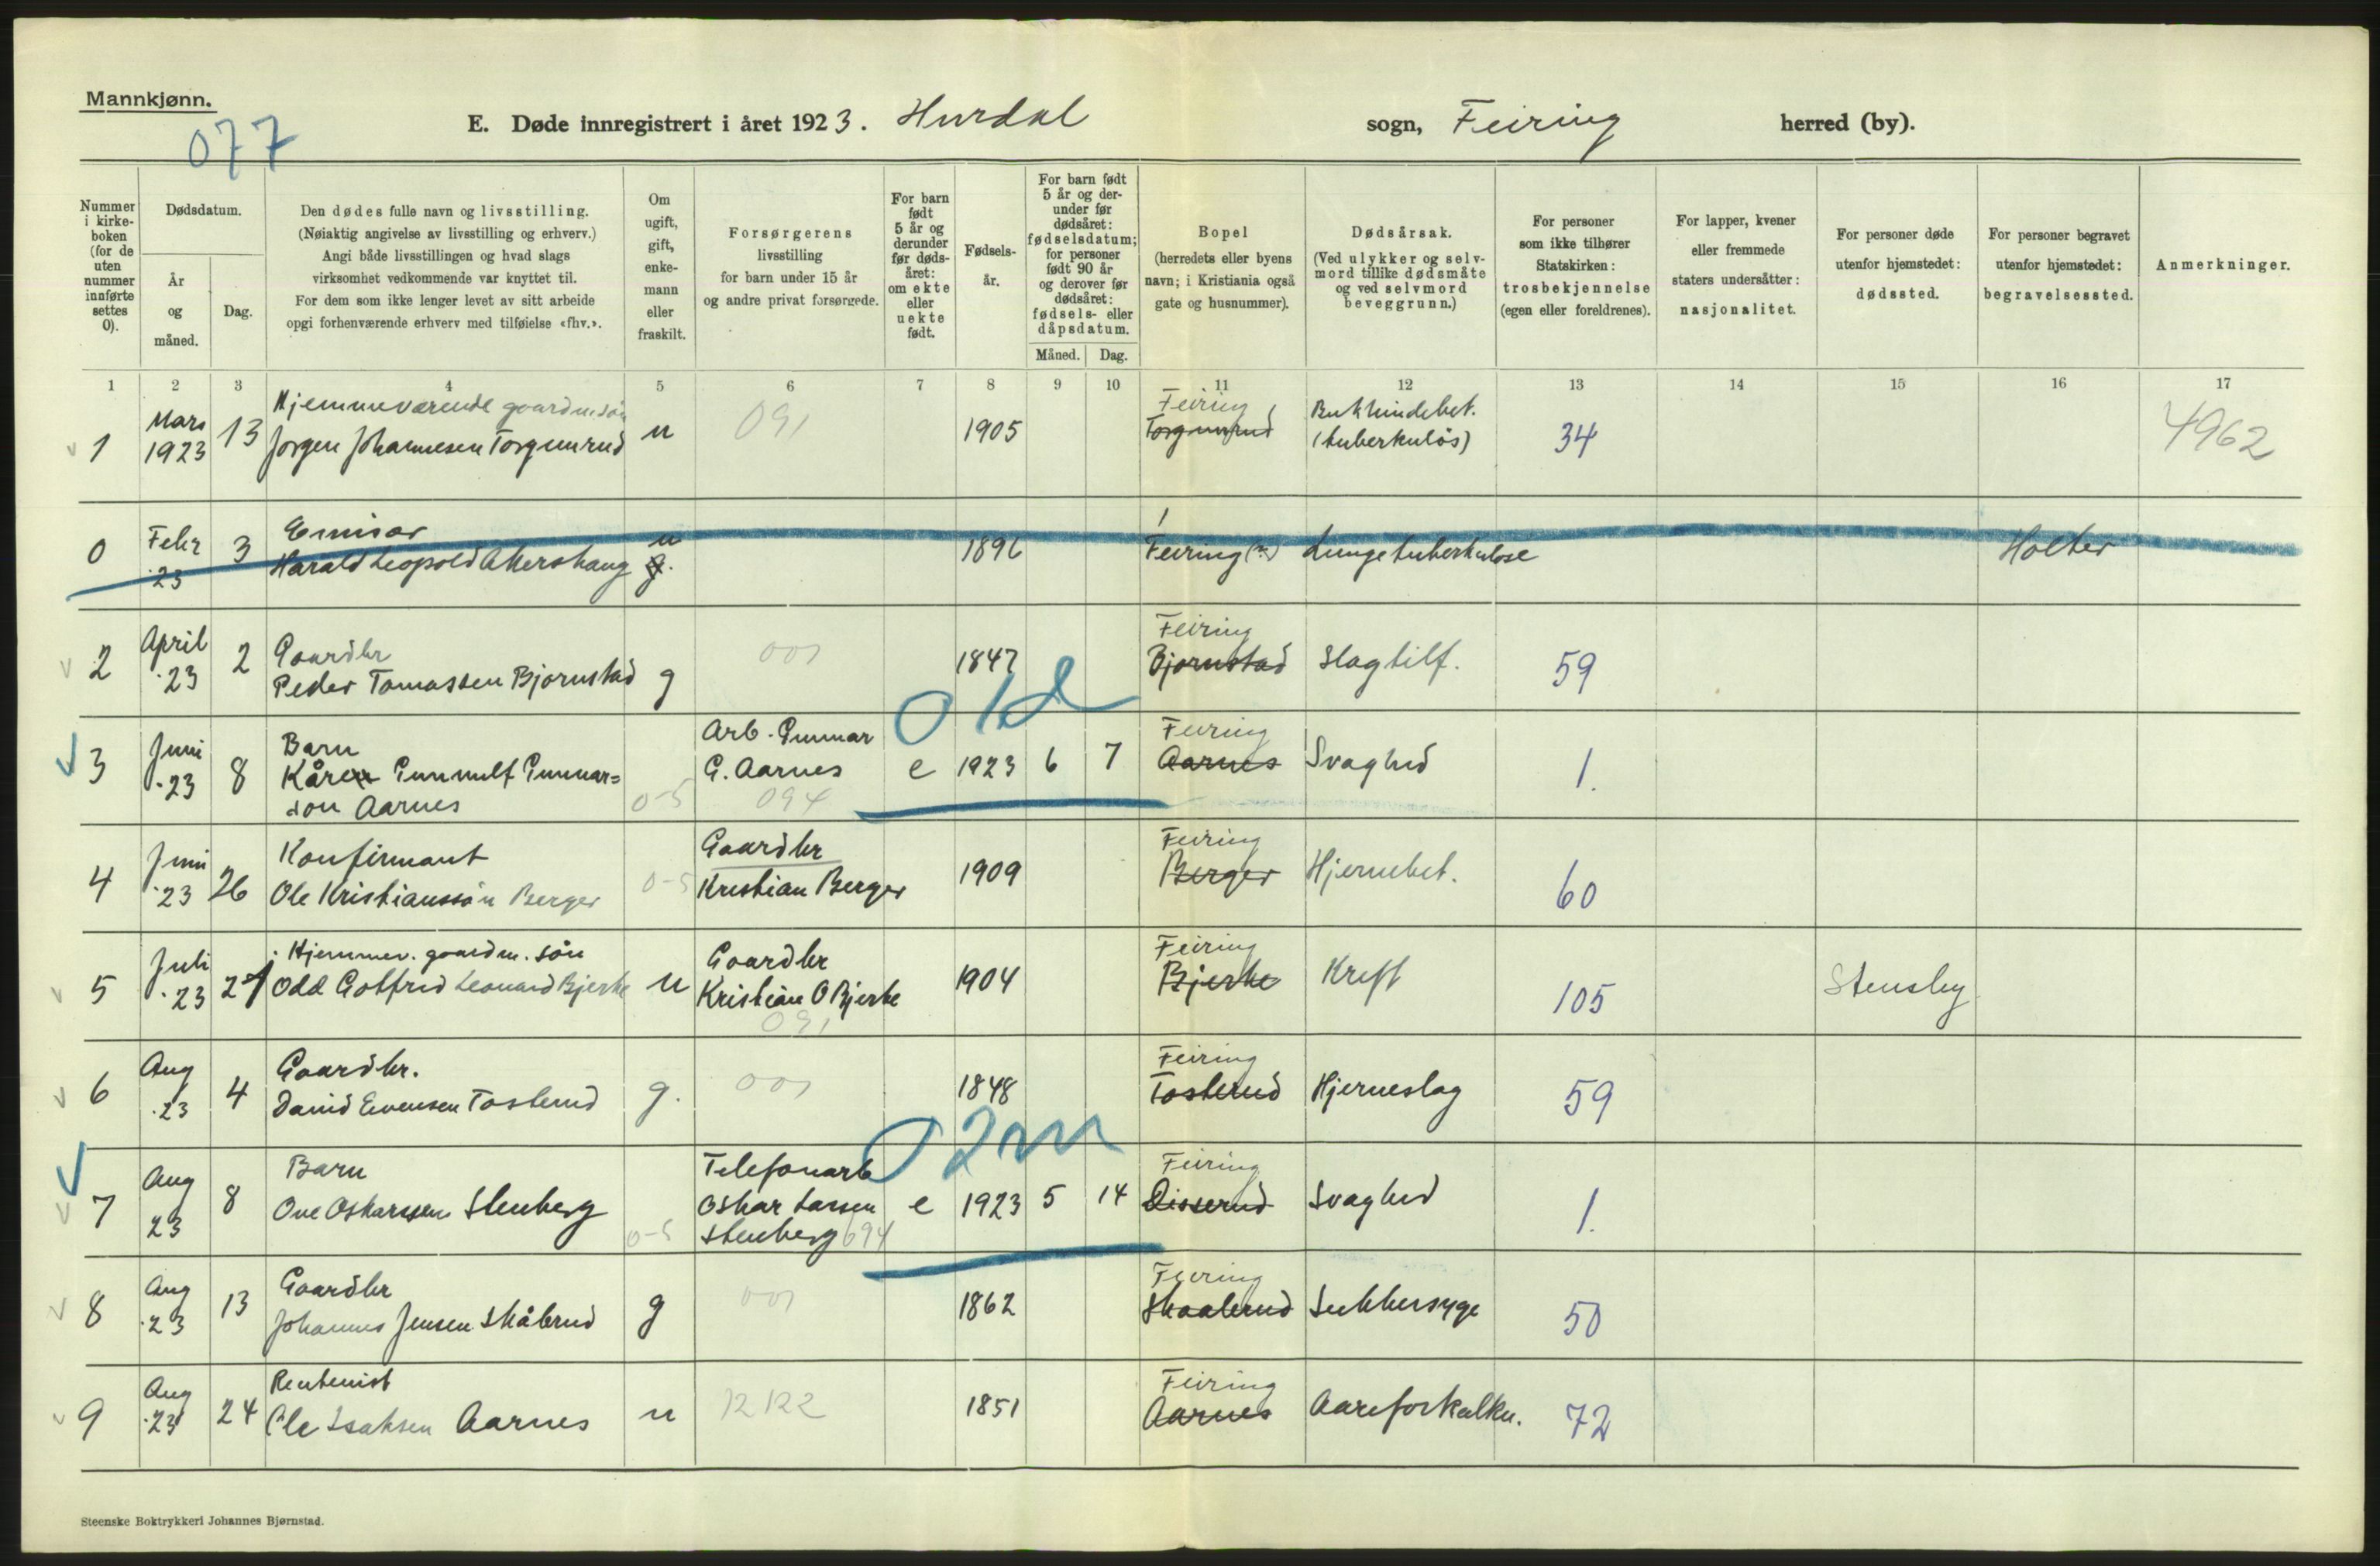 Mannkjønn.
077
E. Døde innregistrert i året 1923. Hurdal sogn, Feiring herred (by).
Nummer i kirke-boken (for de uten nummer innførte settes 0).
Dødsdatum.
År og måned.
Dag.
Den dødes fulle navn og livsstilling.
(Nøiaktig angivelse av livsstilling og erhverv.)
Angi både livsstillingen og hvad slags
virksomhet vedkommende var knyttet til.
For dem som ikke lenger levet av sitt arbeide
opgi forhenværende erhverv med tilføielse «fhv.».
Om ugift, gift, enke-mann eller fraskilt.
Forsørgerens
livsstilling
for barn under 15 år
og andre privat forsørgede.
For barn født 5 år og derunder før døds-året: om ekte eller uekte født.
Fødsels-år.
For barn født 5 år og der-under før dødsåret: fødselsdatum; for personer født 90 år og derover før dødsåret: fødsels- eller dåpsdatum.
Måned. Dag.
Bopel
(herredets eller byens
navn; i Kristiania også
gate og husnummer).
Dødsårsak.
(Ved ulykker og selv-
mord tillike dødsmåte
og ved selvmord
beveggrunn.)
For personer
som ikke tilhører
Statskirken:
trosbekjennelse
(egen eller foreldrenes).
For lapper, kvener
eller fremmede
staters undersåtter:
nasjonalitet.
For personer døde
utenfor hjemstedet:
dødssted.
For personer begravet
utenfor hjemstedet:
begravelsessted.
Anmerkninger.
1 2 3 4 5 6 7 8 9 10 11 12 13 14 15 16 17
1 Mars 1923 13 Hjemmeværende gaardm.søn
Jørgen Johannesen Torgunrud u 091 1905 Feiring Torgunrud Bukhindebet. (tuberkuløs) 34 4962
0 Febr .23 3 Emisær
Harald Leopold Akershaug u g. 1896 Feiring (?) Lungetuberkulose Holter
2 April .23 2 Gaardbr
Peder Tomassen Bjørnstad g 001 1847 Feiring Bjørnstad Slagtilf. 59
01d
3 Juni .23 8 Barn
Kåre Gunnulf Gunnar=
son Aarnes 0-5 Arb. Gunnar G. Aarnes 094 e 1923 6 7 Feiring Aarnes Svaghed 1.
4 Juni .23 26 Konfirmant
Ole Kristianssøn Berger 0-5 Gaardbr Kristian Berger 1909 Feiring Berger Hjernebet. 60
5 Juli .23 27 Hjemmev. gaardm. søn
Odd Gotfred Leonard Bjerke u Gaardbr Kristian O Bjerke 091 1904 Feiring Bjerke Kreft 105 Stensby
6 Aug .23 4 Gaardbr.
David Evensen Tosterud g. 001 1848 Feiring Tosterud Hjerneslag 59
02m
7 Aug 23 8 Barn
Ove Oskarssen Stenberg 0-5 Telefonarb Oskar Larsen Stenberg 694 e 1923 5 14 Feiring Disserud Svaghed 1.
8 Aug .23 13 Gaardbr
Johannes Jensen Skåbrud g 001 1862 Feiring Sukkersyge 50
9 Aug .23 24 Rentenist
Ole Isaksen Aarnes u 12122 1851 Feiring Aarnes Aareforkalkn. 72
Steenske Boktrykkeri Johannes Bjørnstad.